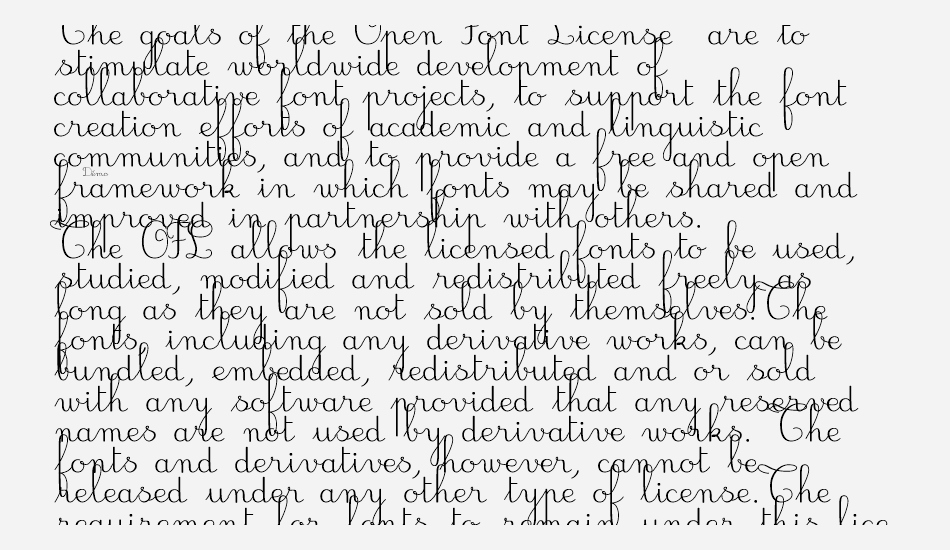 The goals of the Open Font License are to
stimulate worldwide development of
collaborative font projects, to support the font
creation efforts of academic and linguistic
communities, and to provide a free and open
Demo
framework in which fonts may be shared and
improved in partnership with others.
The OFL allows the licensed fonts to be used,
studied, modified and redistributed freely as
long as they are not sold by themselves. The
fonts, including any derivative works, can be
bundled, embedded, redistributed and or sold
with any software provided that any reserved
names are not used by derivative works. The
fonts and derivatives, however, cannot be
released under any other type of license. The
requirement for fonts to remain under this lice